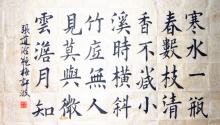 寒水一瓶
春數枝清
香不減小
溪時橫斜
竹底無人
見莫與微
雲澹月知
張道洽瓶梅詩